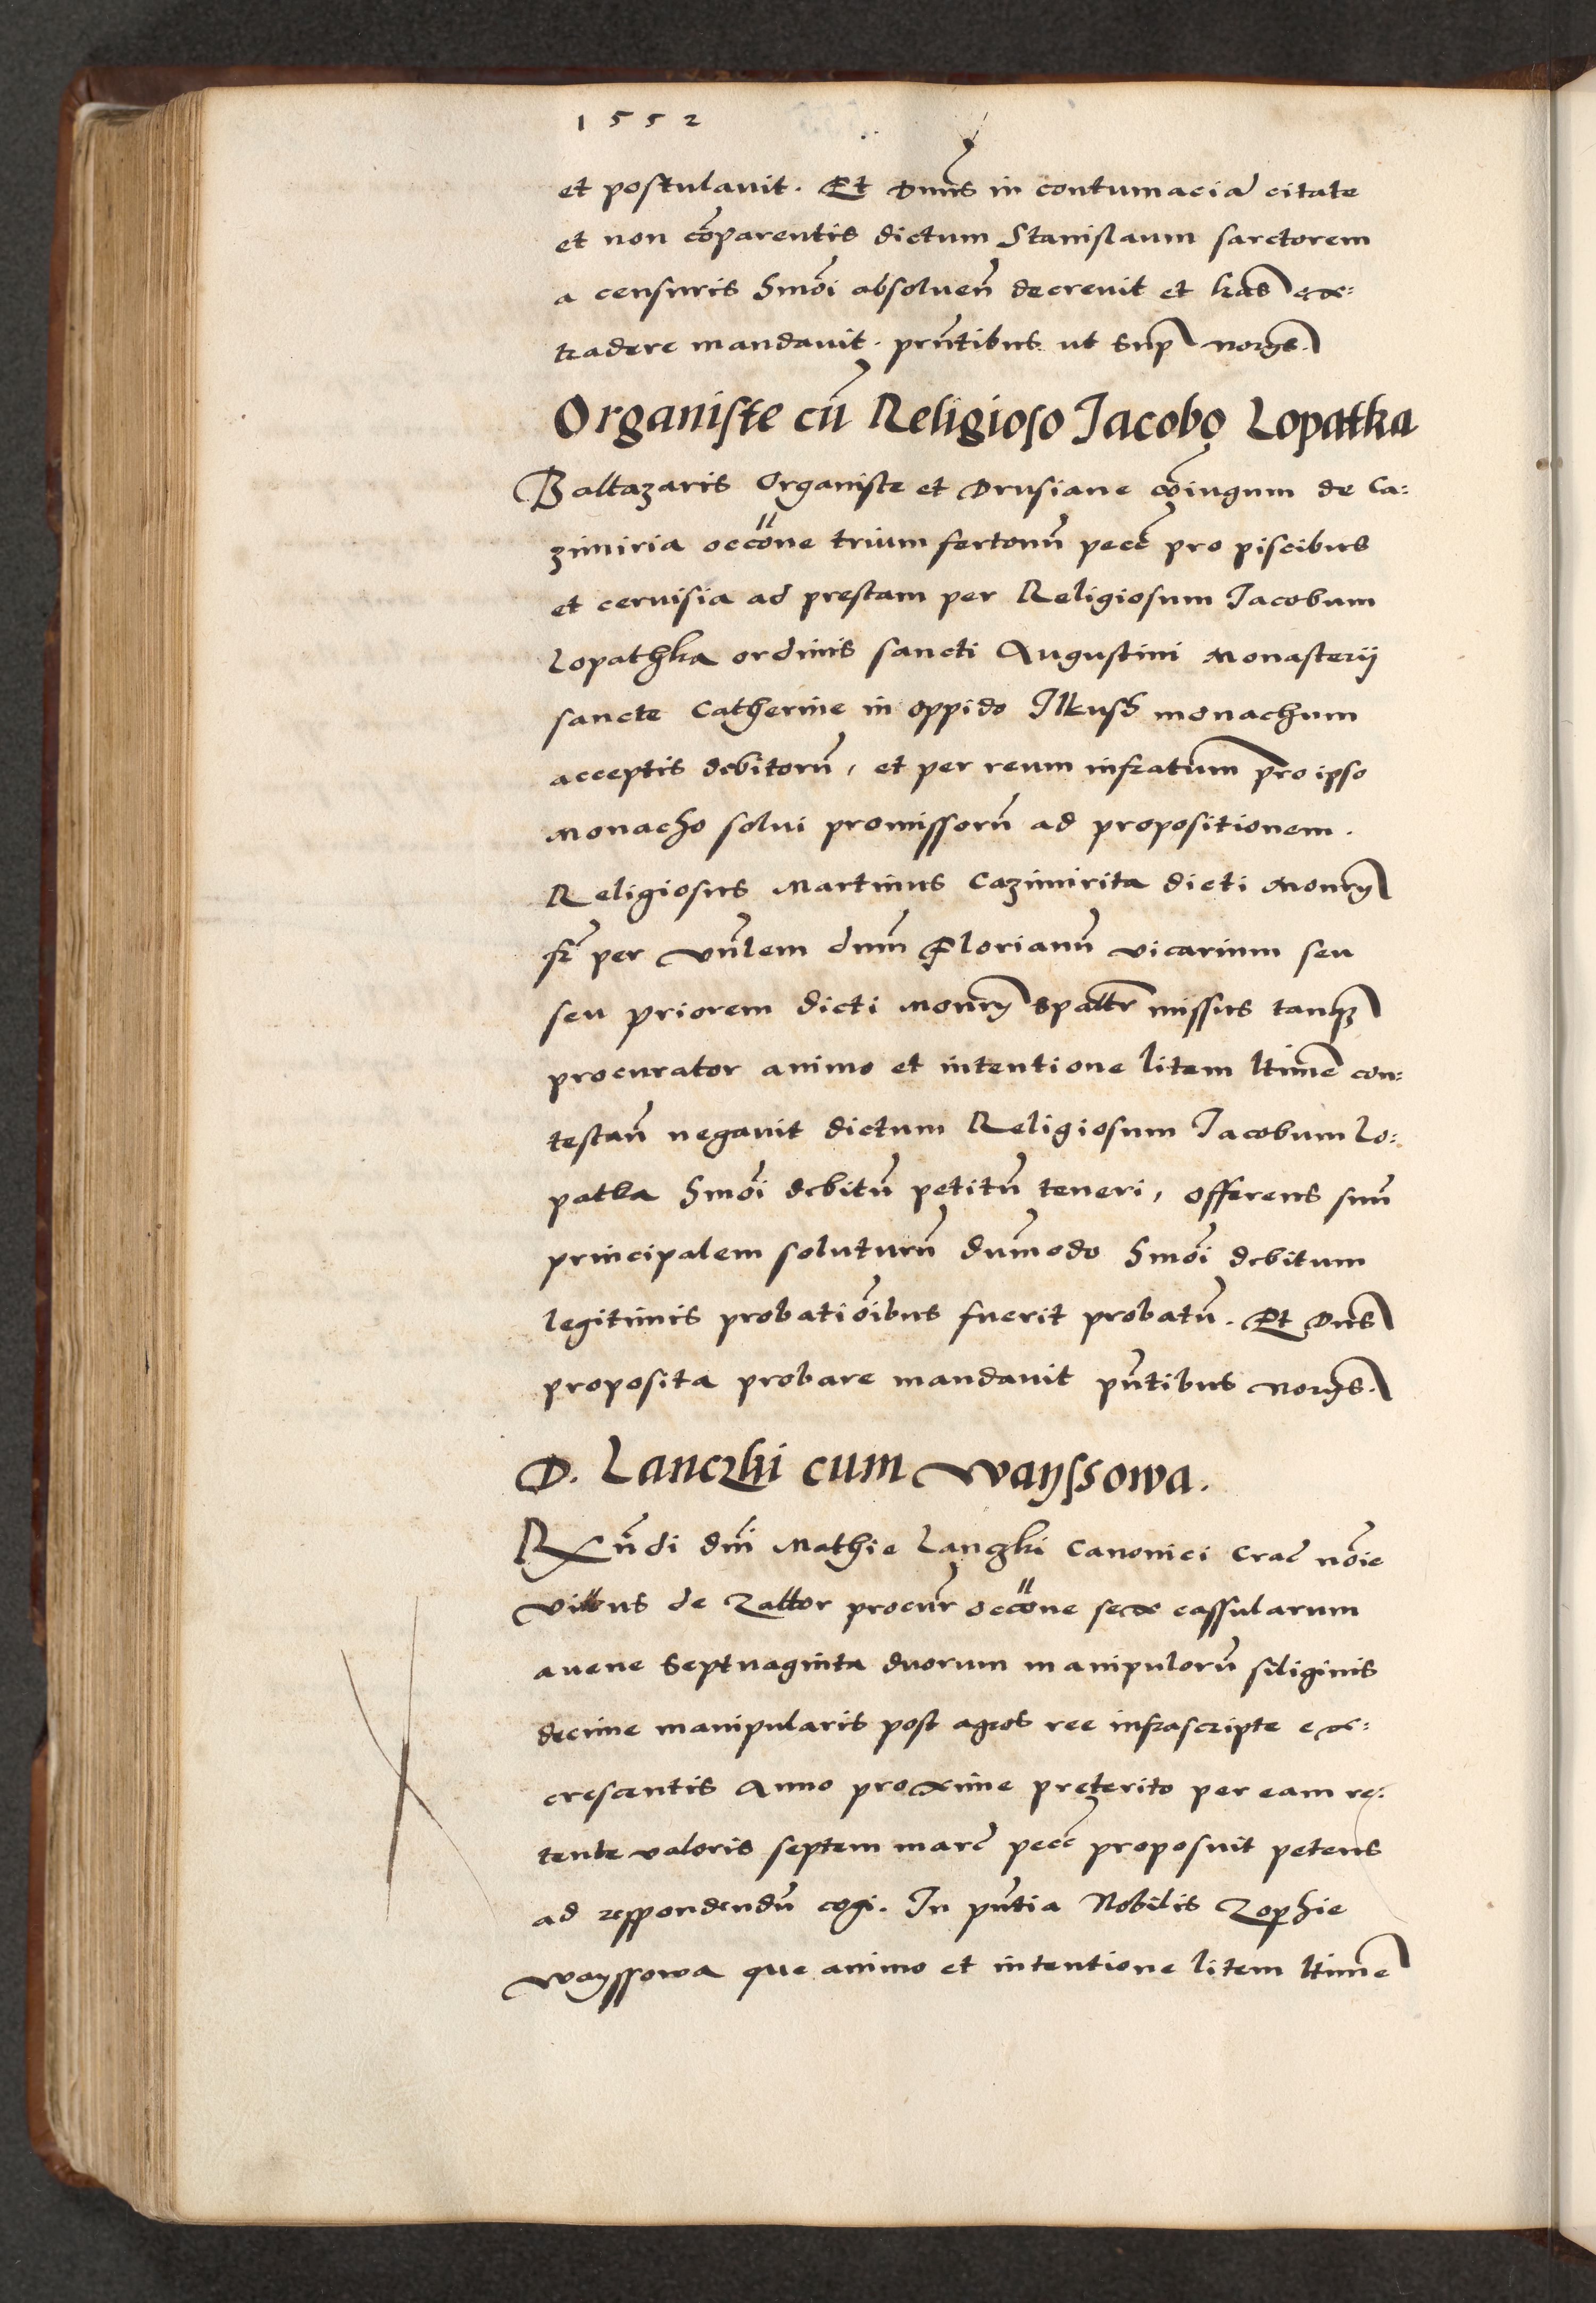 1552
et postulauit. Et Dnus in contumaciã citate
et non cõparentis dictum Stanislaum sarctorem
a censuris hmõi absoluen̄ decreuit et l̃ras ex:
tradere mandauit. prñtibus ut supra notrijs.
Organiste cũ Religioso Jacobo Lopatka
Baltazaris Organiste et Drusiane cõiugum de Ca:
zimiria occõne trium fertonũ pecč pro piscibus
et ceruisia ad prestam per Religiosum Jacobum
Lopathka ordinis sancti Augustini Monasterij
sancte Catherine in oppido Ilkusch monachum
acceptis debitorũ, et per reum infratum pro ipso
Monacho solui promissorũ ad propositionem.
Religiosus Martinus Cazimirita dicti Monrij
fr̃ per Vñlem dnm̃ Florianũ vicarium seu
seu priorem dicti Monrij spalr̃ missus tanq̃
procurator animo et intentione litem ltime con:
testan̄ negauit dictum Religiosum Jacobum Lo:
patka hmõi debitũ petitũ teneri, offerens suũ
principalem soluturũ dum̃odo hmõi debitum
legitimis probatiõibus fuerit probatũ. Et Dns
proposita probare mandauit pñtibus notrijs.
D. Lanczki cum Wayssowa.
Rx̃ndi dñi Mathie Langki Canonici Crač nõie
villons de Zattor procur̃ occõne sex cassularum
auene septuaginta duorum manipulorũ siliginis
decime manipularis post agros ree infrascripte ex:
crescentis Anno proxime preterito per eam re:
tente valoris septem marč pecč proposuit petens
ad respondendũ cogi. In pñtia Nobilis Zophie
Wayssowa que animo et intentione litem ltime